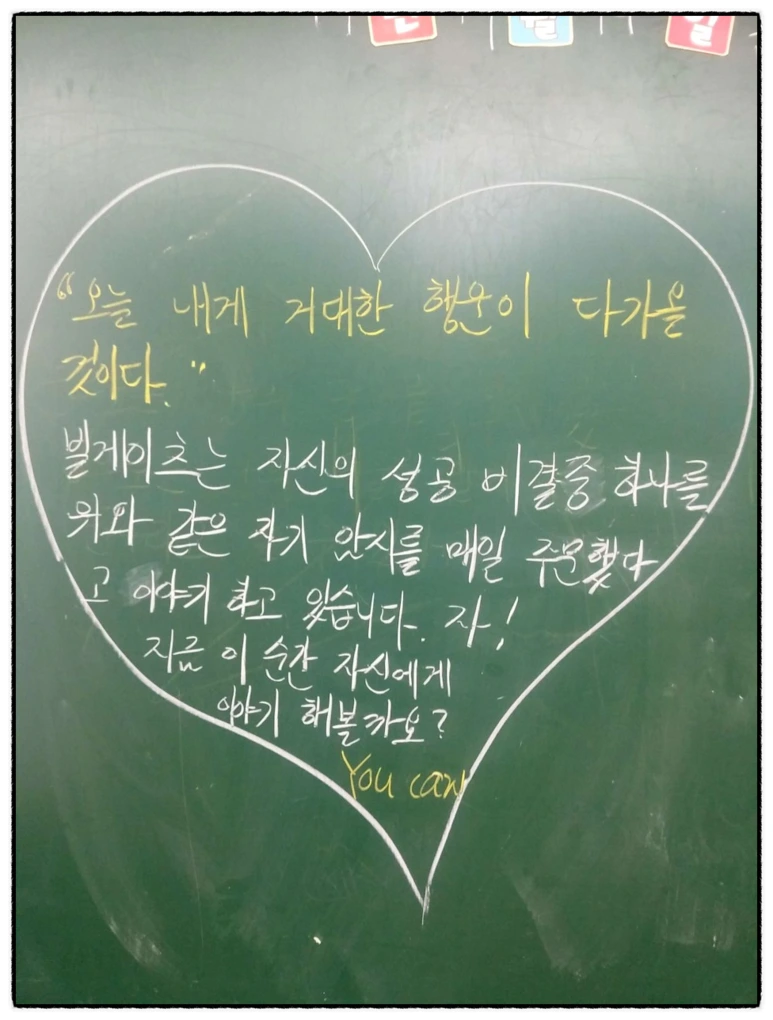 월 일
"오늘 내게 거대한 행운이 다가올
것이다."
빌게이츠는 자신의 성공 비결중 하나를
위와 같은 자기 암시를 매일 주문했다
고 이야기 하고 있습니다. 자!
지금 이 순간 자신에게
이야기 해볼까요?
You can